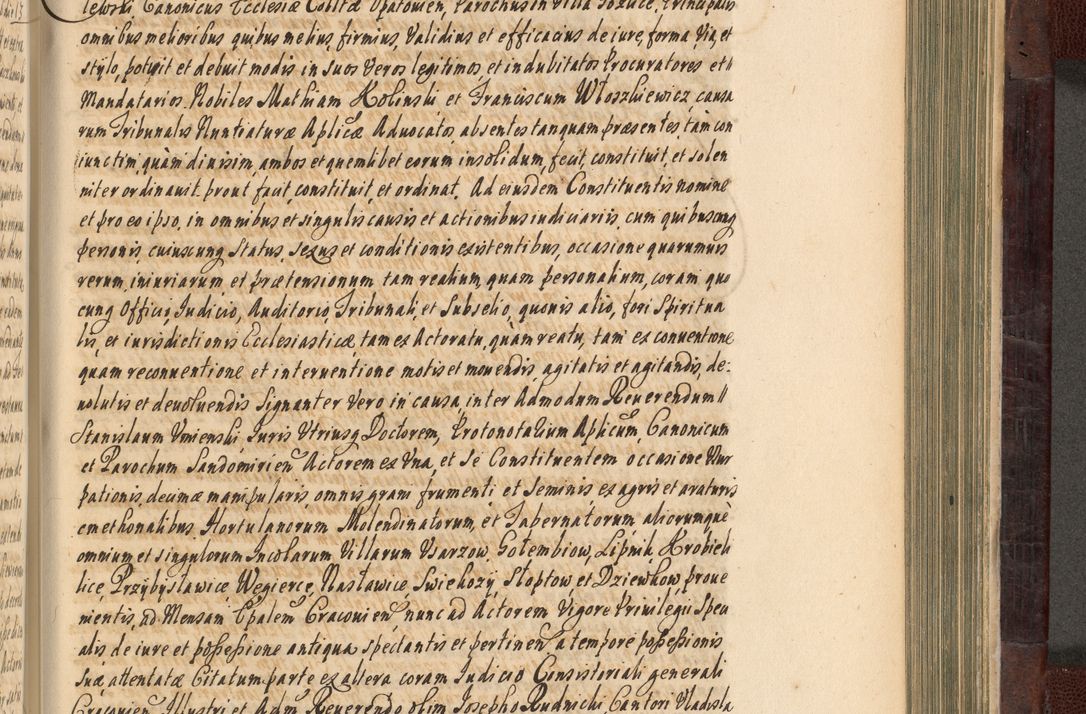 lewski Canonicus Ecclesiæ Colltæ Opatovien, Parochus in Villa Goźlice, Principalis
omnibus melioribus quibus melius, firmius, Validius et efficacius de iure, forma Via, et
stylo, potuit et debuit modis in suos Veros legitimos et indubitatos Procuratores et
Mandatarios. Nobiles Mathiam Holinski et Franciscum Włoszkiewicz causa
rum Tribunalis Nuntiaturæ Aplicæ Aduocatos absentes tanquam præsentes, tàm con
iunctim, quàm diuisim, ambos et quemlibet eorum insolidum, fecit, constituit, et solen
niter ordinauit. prout facit, constituit, et ordinat. Ad eiusdem Constituentis nomine
et pro eo ipso, in omnibus et singulis causis et actionibus iudiciariis, cum quibuscunq
personis, cuiuscunq Status, Sexus et conditionis existentibus, occasione quarumuis
rerum, iniuriarum et prætensionum, tam realium, quam personalium, coram quo
cunq Officio, Iudicio, Auditorio, Tribunali, et Subselio, quouis alio, fori Spiritua
lis, et iurisdictionis Ecclesiasticæ, tam ex Actoratu, quàm reatu, tam ex conuentione
quam reconuentione et interuentione motis et mouendis agitatis et agitandis, de:
uolutis et deuoluendis Signanter Vero in causa, inter Admodum Reuerendum
Stanislaum Vmienski Iuris Vtriusq Doctorem, Protonotarium Aplicum, Canonicum
et Parochum Sandomirien Actorem ex Vna, et Se Constituentem occasione Vsur
pationis, decimæ manipularis, omnis grani frumenti et Seminis, ex agris et araturis
cmethonalibus Hortulanorum Molendinatorum, et Tabernatorum, aliorumquè
omnium et singulorum Incolarum Villarum Vsarzow Gołembiow, Lipnik, Krobieli
lice, Przybysławice, Węgierce, Nasławice, Swiekozy, Słoptow, et Dziewkow, proue
nientis, ad Mensam Epalem Cracouien, nunc ad Actorem Vigore Priuilegii Speci
alis de iure et possessione antiqua spectantis et pertinen a tempore possessionis
Suæ attentatæ Citatum parte ex altera coram Iudicio Consistoriali generali
Cracouien Illustri et Adm Reuerendo olim Iosepho Rudnicki, Cantori Vladisla